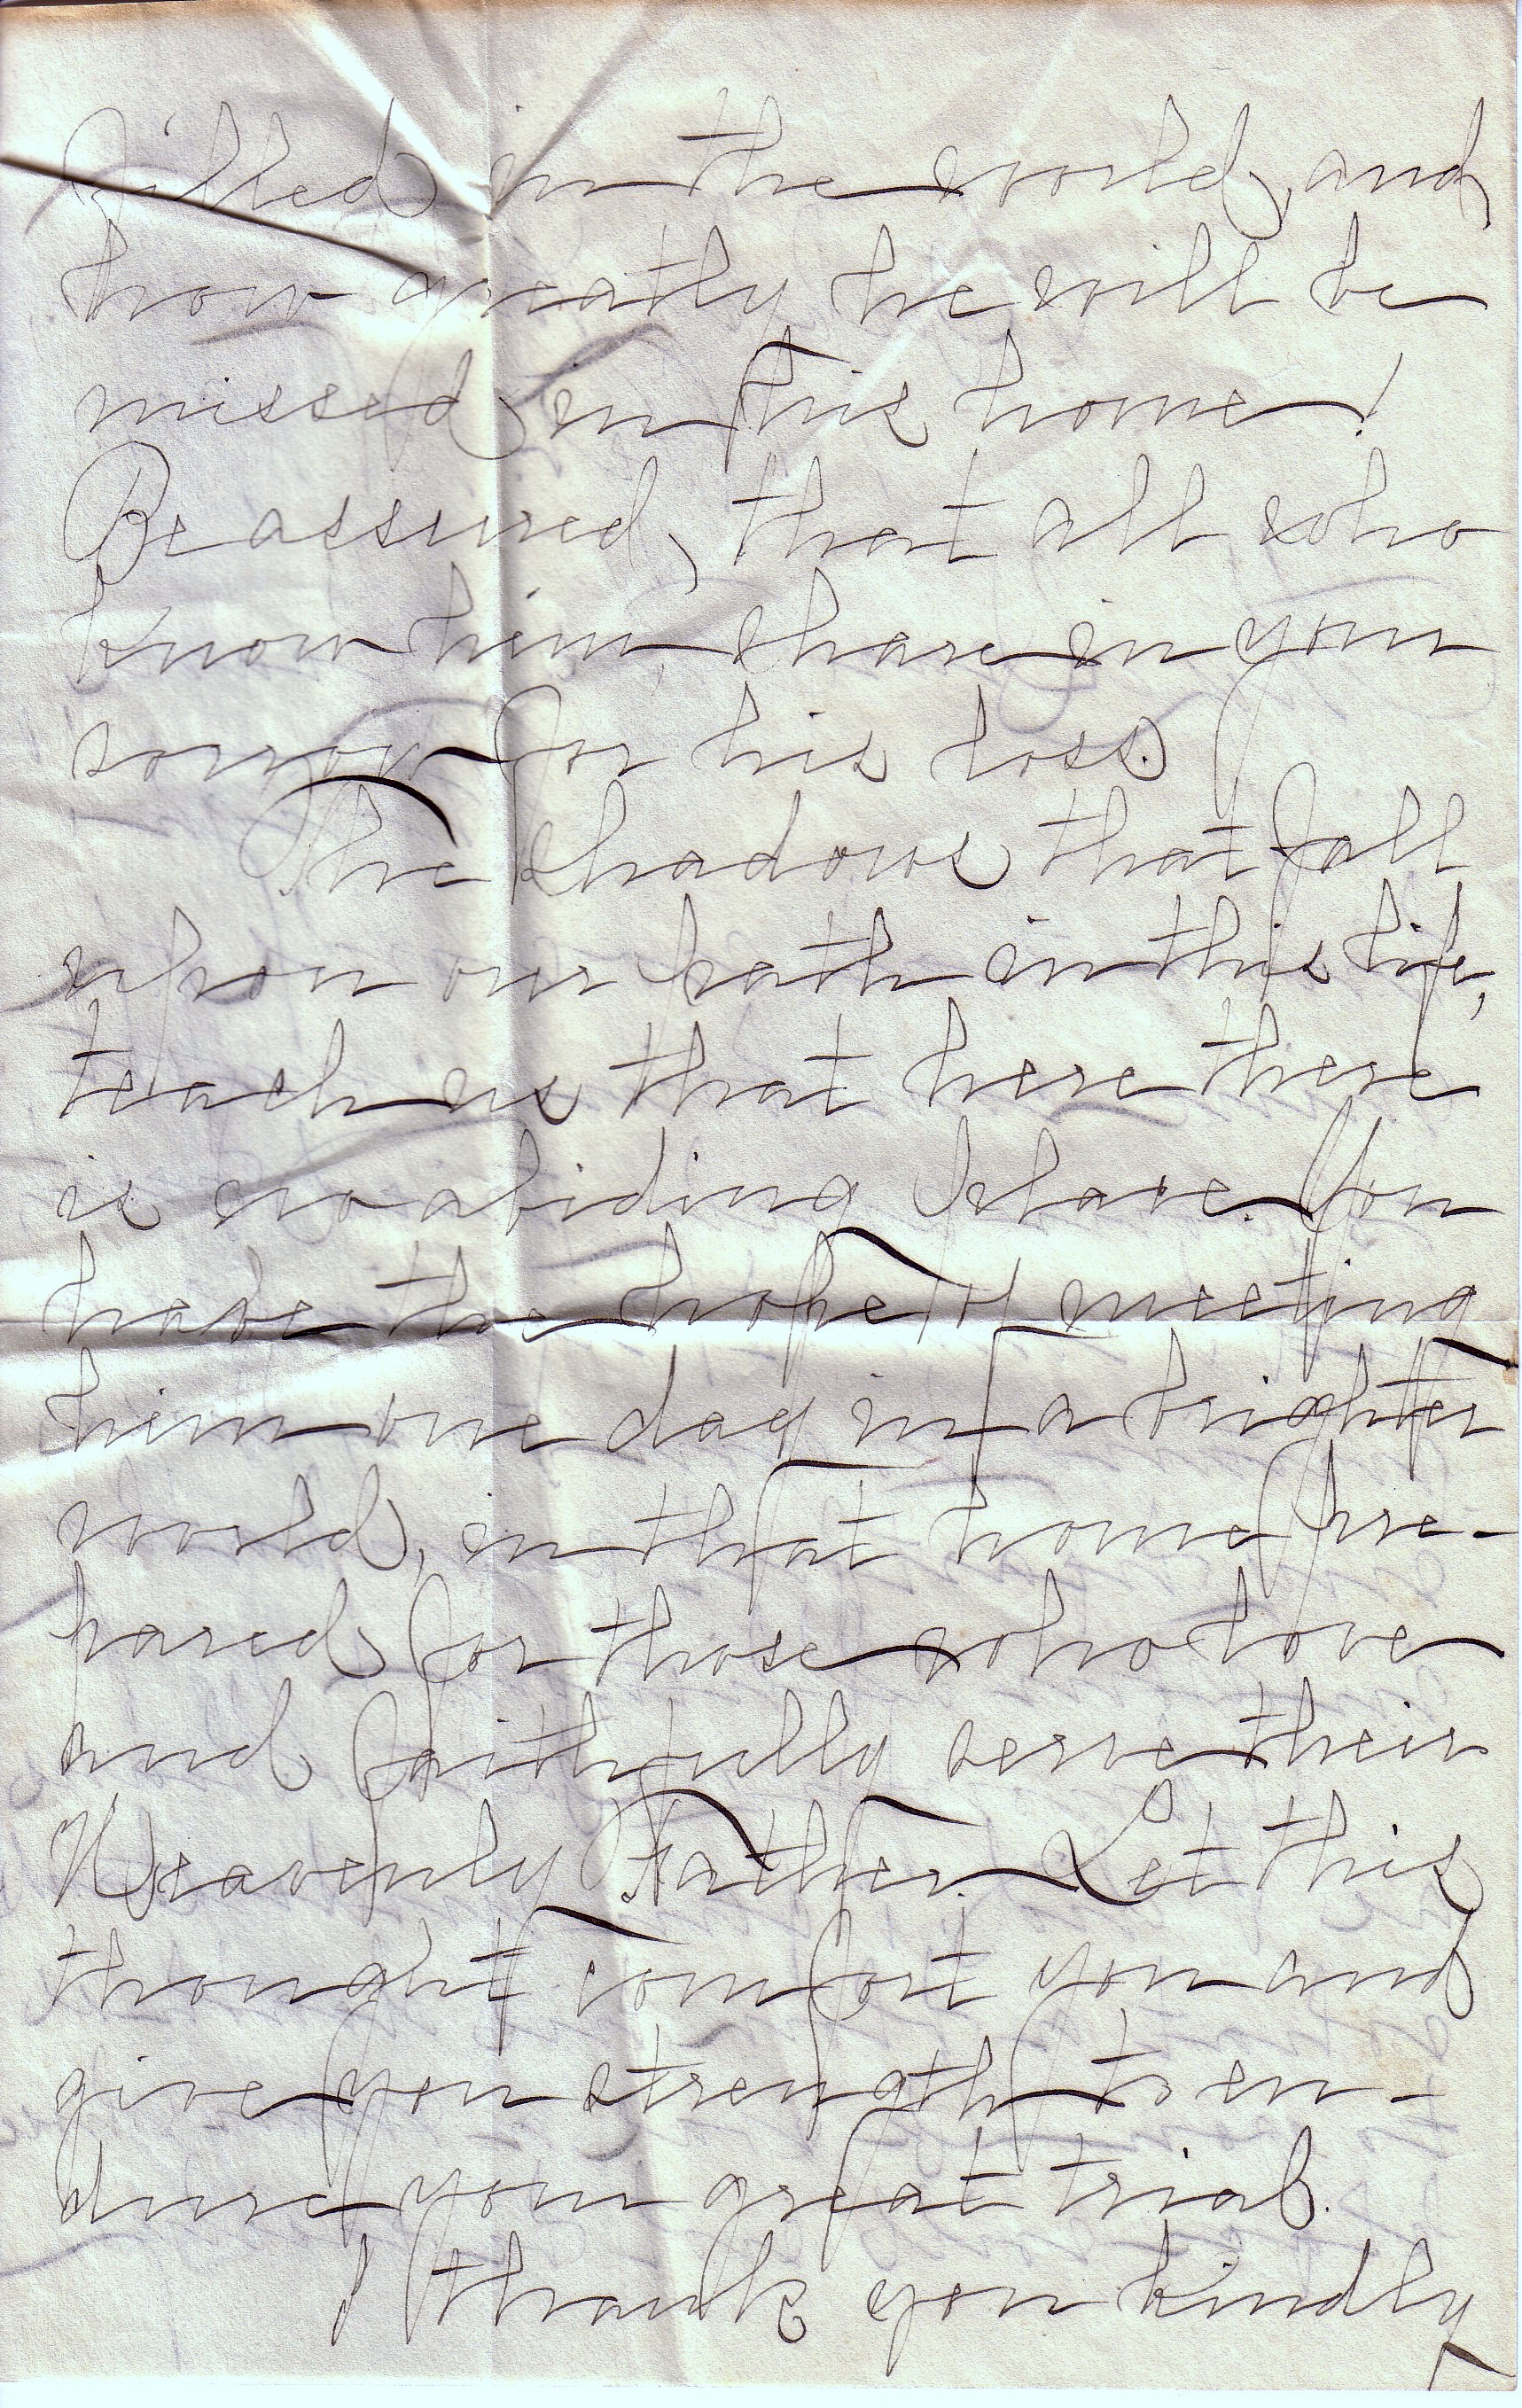 filled in the world, and
how greatly he will be
missed in this home!
Be assured, that all who
know him, share in your
sorrow for his loss.
The shadows that fall
upon our path in this life,
teach us that here there
is no abiding place. You
have the hope of meeting
him one day in a brighter
world, in that home pre-
pared for those who love
and faithfully serve their
Heavenly Father. Let this
thought comfort you and
give you strength to en-
dure your great trial.
I thank you kindly